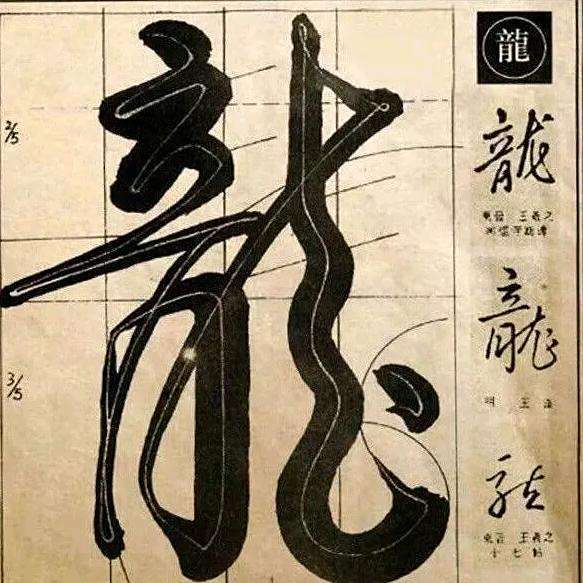 龍
2/5
3/5
龍
龍
東晉 王羲之
龍
明 王
龍
東晉 王羲之
十七帖